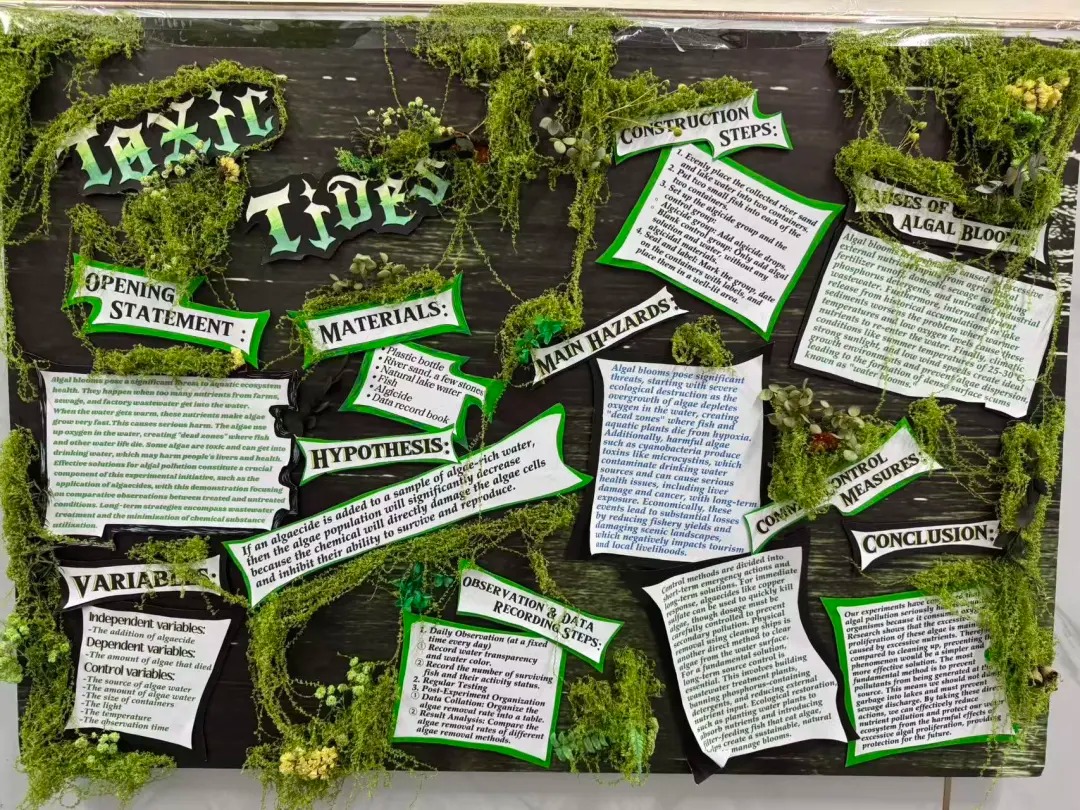 Toxic
Tides
OPENING
STATEMENT :
Algal blooms pose a significant threat to aquatic ecosystem
health. They happen when too many nutrients from farms,
sewage, and factory wastewater get into the water.
When the water gets warm, these nutrients make algae
grow very fast. This causes serious harm. The algae use
up oxygen in the water, creating "dead zones" where fish
and other water life die. Some algae are toxic and can get into
drinking water, which may harm people's livers and health.
Effective solutions for algal pollution constitute a crucial
component of this experimental initiative, such as the
application of algaecides, with this demonstration focusing
on comparative observations between treated and untreated
conditions. Long-term strategies encompass wastewater
treatment and the minimisation of chemical substance
utilisation.
MATERIALS:
Plastic bottle
• River sand, a few stones
• Natural lake water
• Fish
• Algicide
• Data record book
HYPOTHESIS:
If an algaecide is added to a sample of algae-rich water,
then the algae population will significantly decrease
because the chemical will directly damage the algae cells
and inhibit their ability to survive and reproduce.
VARIABLES:
Independent variables:
-The addition of algaecide
Dependent variables:
-The amount of algae that died
Control variables:
-The source of algae water
-The amount of algae water
-The size of containers
-The light
-The temperature
-The observation time
CONSTRUCTION
STEPS:
1. Evenly place the collected river sand
and lake water into two containers.
2. Put two small fish into each of the
two containers.
3. Set up the algicide group and the
control group:
◦ Algicide group: Add algicide drops.
◦ Blank control group: Only add algae
solution and water, without any
algicidal materials.
4. Seal and label: Mark the group, date
on the containers with labels, and
place them in a well-lit area.
MAIN HAZARDS:
Algal blooms pose significant
threats, starting with severe
ecological destruction as the
overgrowth of algae depletes
oxygen in the water, creating
"dead zones" where fish and
aquatic plants die from hypoxia.
Additionally, harmful algae
such as cyanobacteria produce
toxins like microcystins, which
contaminate drinking water
sources and can cause serious
health issues, including liver
damage and cancer, with long-term
exposure. Economically, these
events lead to substantial losses
by reducing fishery yields and
damaging scenic landscapes,
which negatively impacts tourism
and local livelihoods.
OBSERVATION & DATA
RECORDING STEPS:
1. Daily Observation (at a fixed
time every day)
① Record water transparency
and water color.
② Record the number of surviving
fish and their activity status.
2. Regular Testing
3. Post-Experiment Organization
① Data Collation: Organize the
algae removal rate into a table.
② Result Analysis: Compare the
algae removal rates of different
algae removal methods.
OF
ALGAL BLOOMS
Algal blooms are caused by
external nutrients from agricultural
fertilizer runoff, domestic sewage containing
phosphorus detergents, and industrial
wastewater. Furthermore, internal nutrient
release from historical accumulations in lake
sediments worsens the problem when high
temperatures and low oxygen levels cause these
nutrients to re-enter the water. Finally, climatic
conditions like high temperatures of 25-30°C,
strong sunlight, and low wind speeds create ideal
growth environments for algae,
leading to the formation of dense surface scums
known as "water blooms."
CONTROL
MEASURES:
Control methods are divided into
short-term emergency actions and
long-term solutions. For immediate
response, algaecides like copper
sulfate can be used to quickly kill
algae, but dosage must be
carefully controlled to prevent
secondary pollution. Physical
methods using cleanup ships to
algae from the water to clear
long-term, fundamental solution,
essential. This involves building
wastewater treatment plants,
phosphorus-containing
detergents, and reducing external
nutrient inputs. Ecological restoration,
such as planting water plants to
absorb nutrients and introducing
filter-feeding fish that eat algae,
create a sustainable, natural
manage blooms.
CONCLUSION:
Our experiments have
pollution seriously harms
organisms because it consumes
Research shows that the excessive
proliferation of these algae is mainly
caused by excessive nutrients.
compared to cleaning up, preventing
phenomenon would be a simpler and
more effective solution. The most
fundamental method is to prevent
pollution from being generated at the
source. This means we should not dump
garbage into lakes and must prevent
sewage discharge. By taking these
actions, we can effectively reduce
nutrient pollution and protect our
ecosystem from the harmful effects of
excessive algal proliferation, providing
protection for the future.